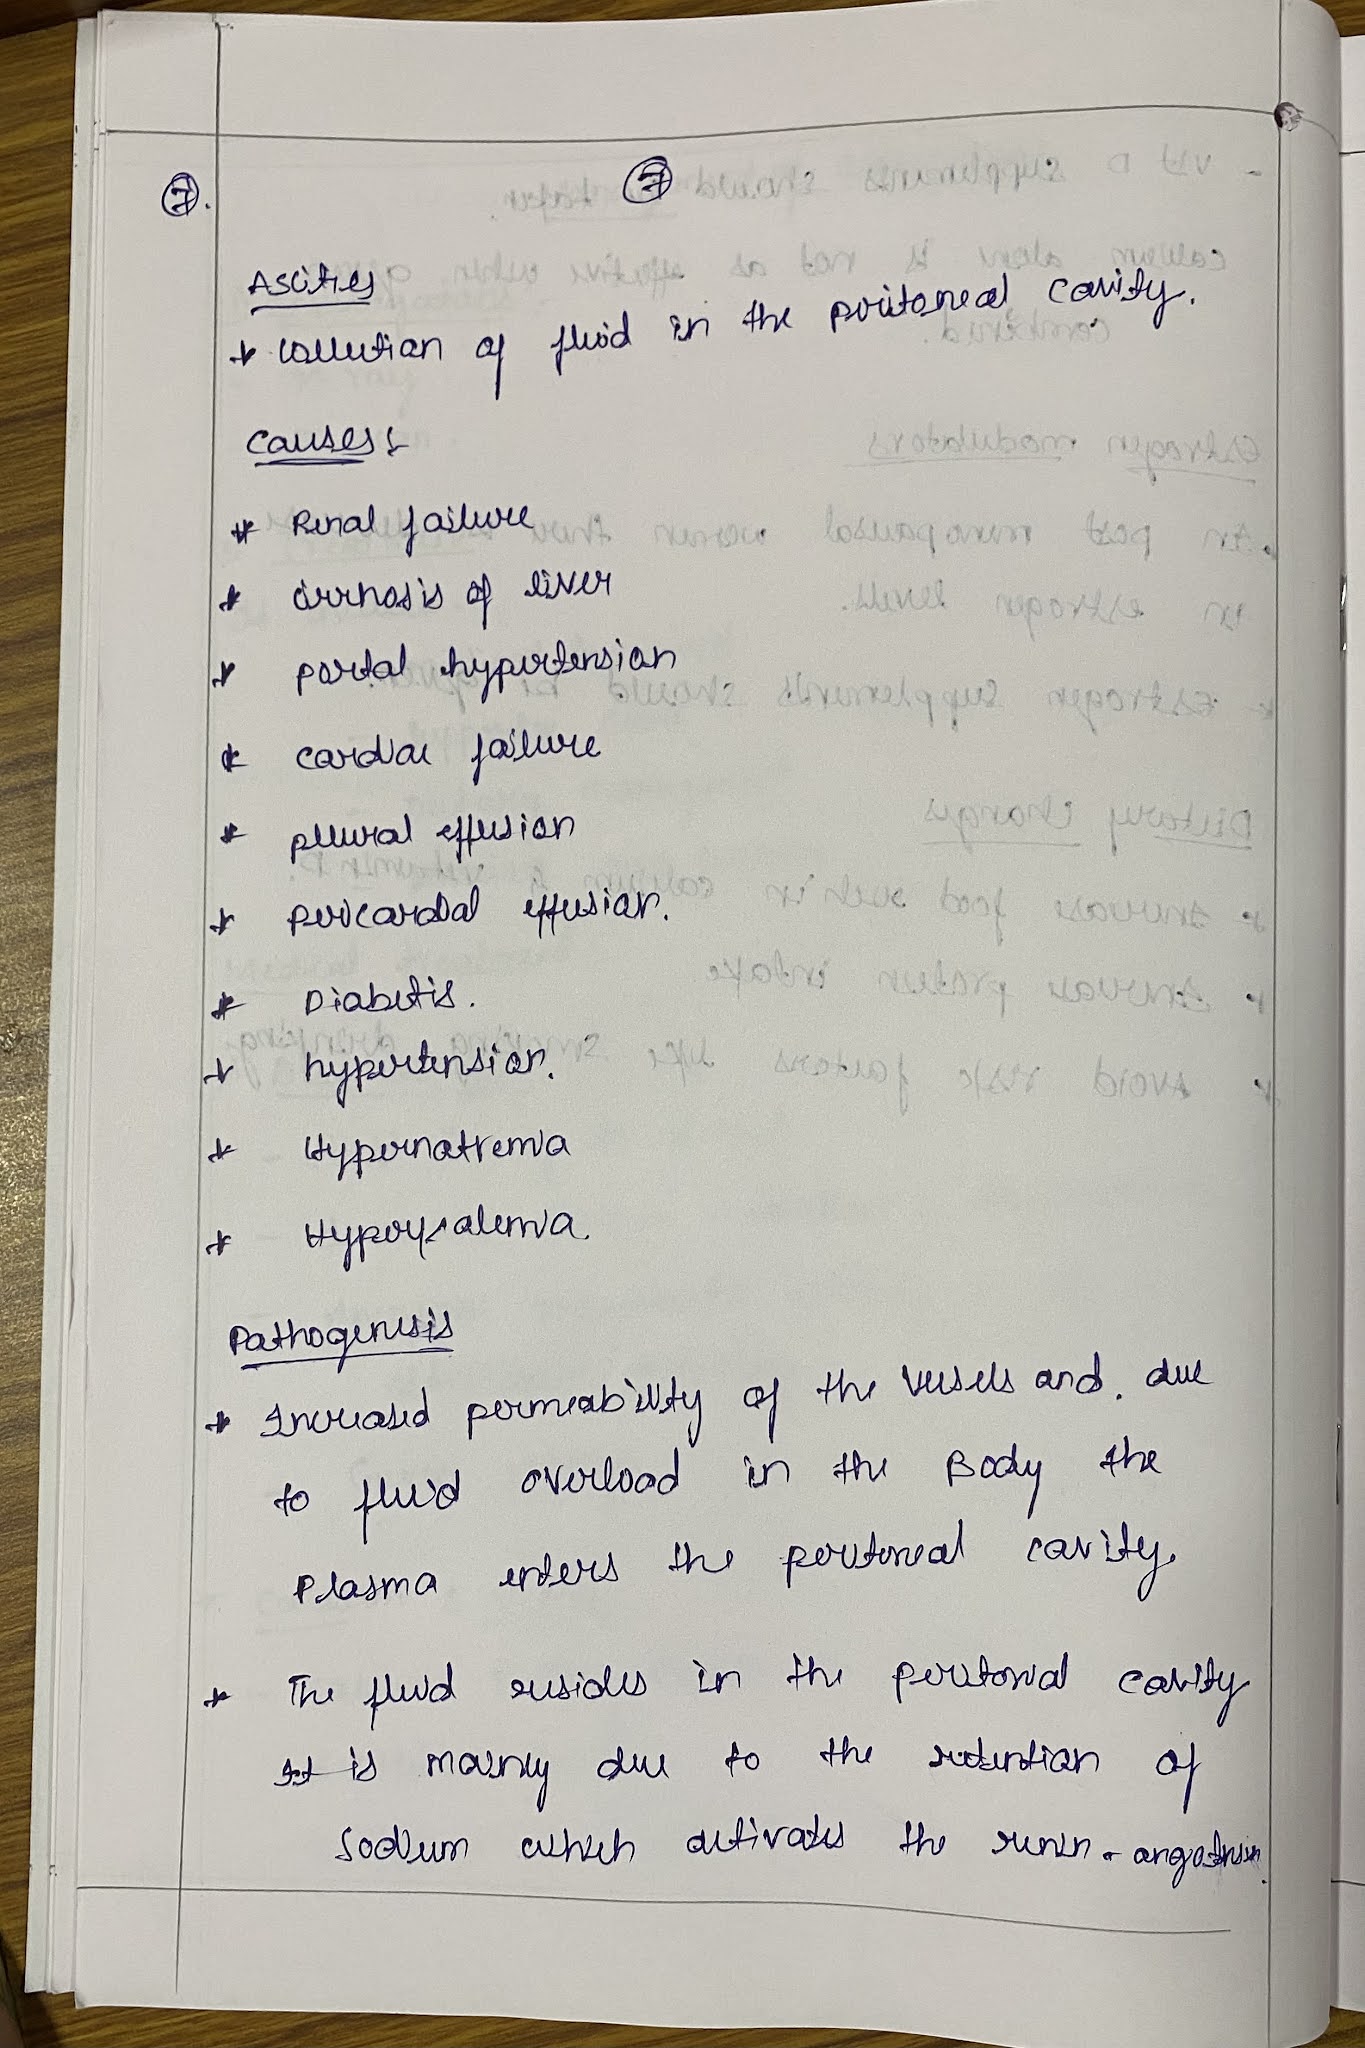 7.
7
Ascites
* Collection of fluid in the peritoneal cavity.
Causes :-
* Renal failure
* cirrhosis of liver
* portal hypertension
* cardiac failure
* pleural effusion
* pericardial effusion.
* Diabetis.
* hypertension.
* Hypernatremia
* Hyperkalemia.
Pathogenesis
* Increased permeability of the vessels and. due
to fluid overload in the Body the
plasma enters the peritoneal cavity.
* The fluid resides in the peritonial cavity
It is mainly due to the retention of
sodium which activates the renin - angiotensin